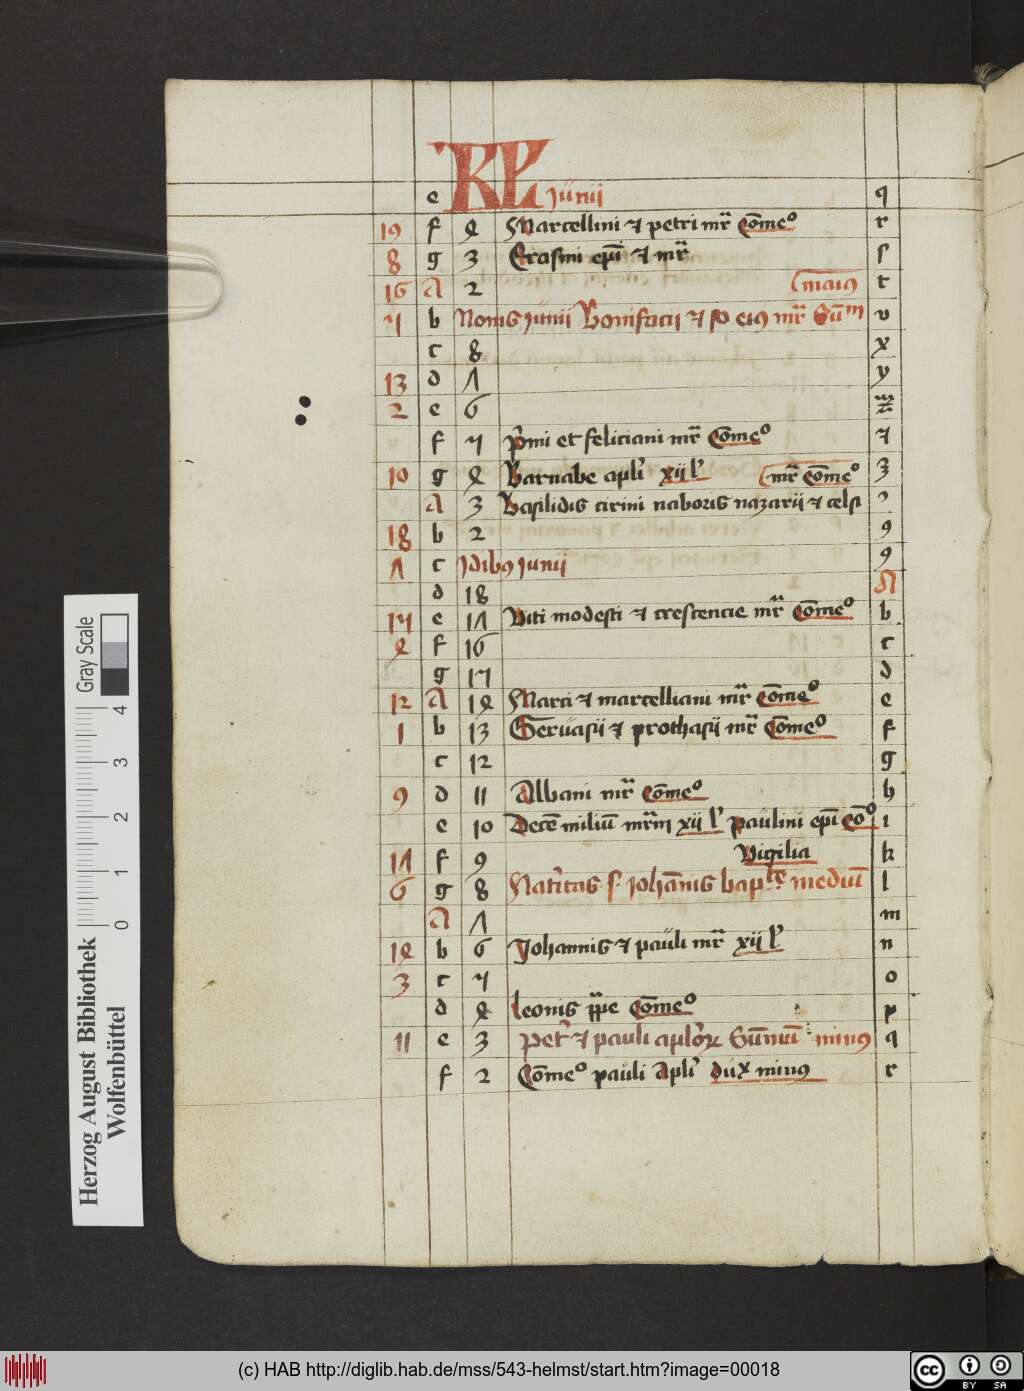 e KL Junii q
19 f 4 Marcellini et petri mr̄ Cōmeo r
8 g 3 Erasmi epī et mr̄ s
16 A 2 maius t
5 b Nonis Junii Bonifacii et so eius mr̄ Sūm v
c 8 x
13 d 7 y
2 e 6 z
f 5 p̄mi et feliciani mr̄ Cōmeo
10 g 4 Barnabe apli xii l mr̄ Cōmeo
A 3 Basilidis cirini naboris nazarii et celsi
18 b 2 9
7 c Idibus Junii 9
d 18 A
e 17 b
15 e 17 Viti modesti et crescencie mr̄ Cōmeo b
4 f 16 c
g 15 d
12 A 14 Marci et marcelliani mr̄ Cōmeo e
1 b 13 Gervasii et prothasii mr̄ Cōmeo f
c 12 g
9 d 11 Albani mr̄ Cōmeo h
e 10 Decē miliū mr̄m xii l paulini epī Cōo i
17 f 9 Vigilia k
6 g 8 Nat'itas s. Johānis bapte mediū l
A 7 m
14 b 6 Johannis et pauli mr̄ xii l n
3 c 5 o
d 4 leonis pp̄e Cōmeo p
11 e 3 Pet' et pauli aplor Sūmū minus q
f 2 Cōmeo pauli Apli dux minus r
Gray Scale
4
3
2
1
0
Herzog August Bibliothek
Wolfenbüttel
(c) HAB http://diglib.hab.de/mss/543-helmst/start.htm?image=00018
cc BY SA